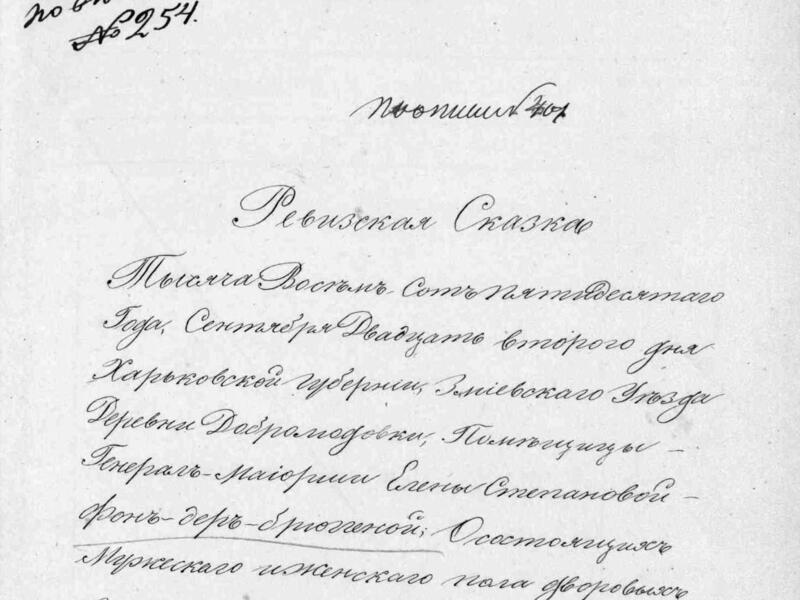 № 254.
по описи №
Ревизская Сказка
Тысяча Восемъ сотъ пятидесятаго
Года, Сентября Двадцать втораго дня
Харьковской губерніи, Зміевскаго Уѣзда
Деревни Добромодовки, Помѣщицы —
Генералъ-Маіорши Елены Степановой —
фонъ-деръ-бриггеной; О состоящихъ
Мужескаго и женскаго пола дворовыхъ